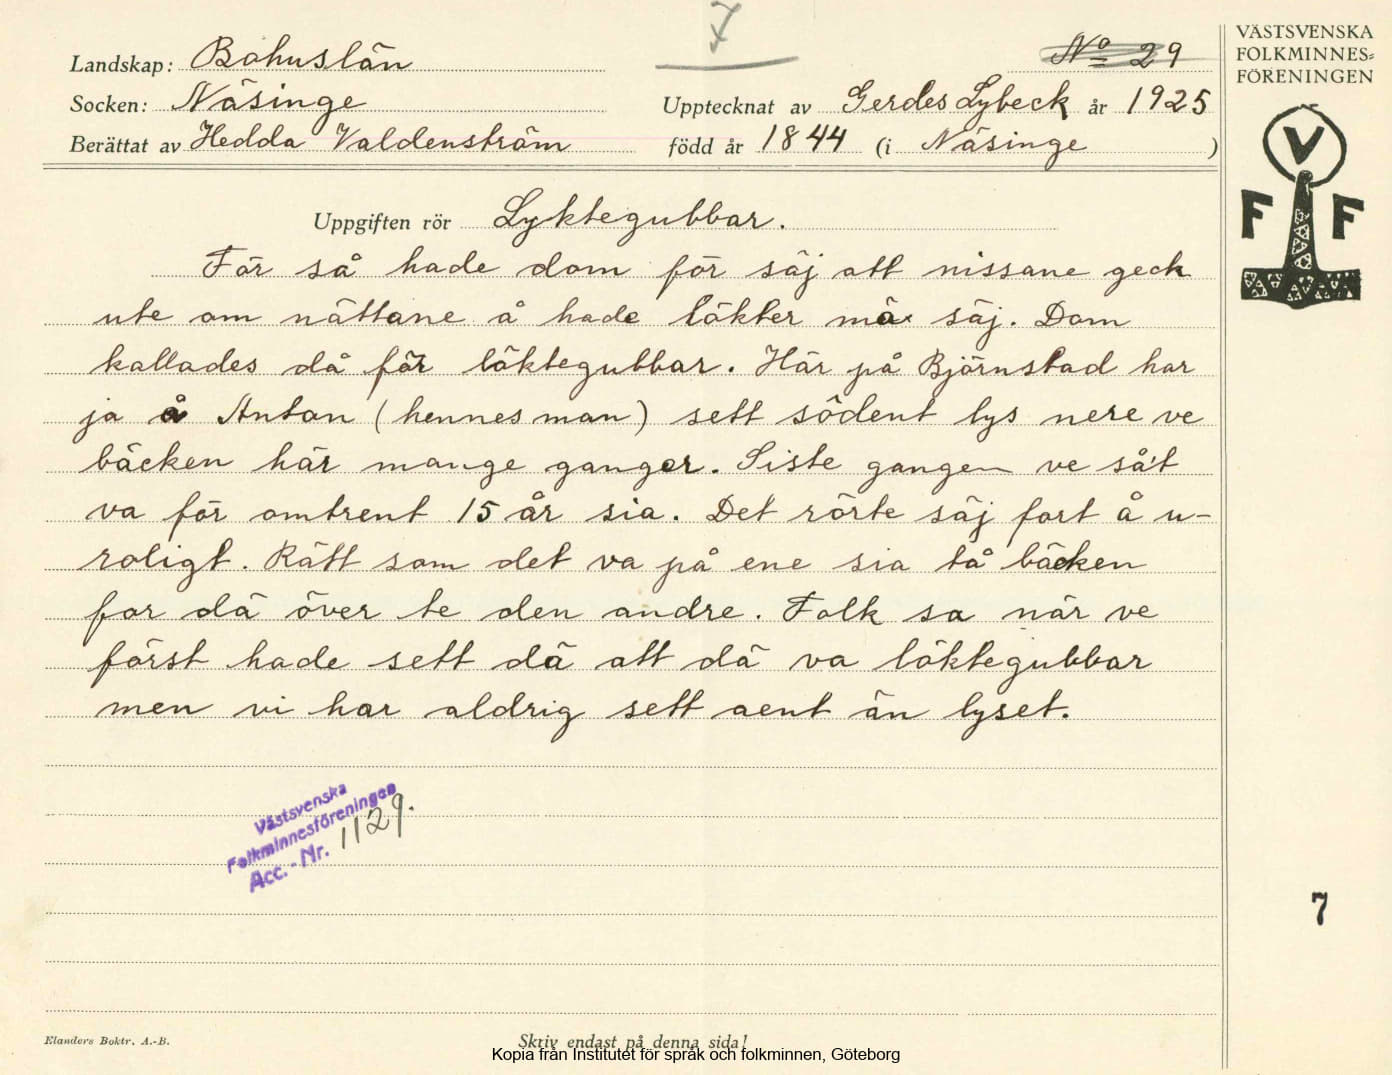 7
Nº 29
VÄSTSVENSKA
FOLKMINNES=
FÖRENINGEN
V
F F
Landskap: Bohuslän
Socken: Näsinge Upptecknat av Gerdes Lybeck år 1925
Berättat av Hedda Valdenström född år 1844 (i Näsinge )
Uppgiften rör Lyktegubbar.
För så hade dom för säj att nissane geck
ute om nättane å hade lökter mä säj. Dom
kallades då för löktegubbar. Här på Björnstad har
ja å Anton (hennes man) sett södent lys nere ve
bäcken här mange ganger. Siste gangen ve så't
va för omtrent 15 år sia. Det rörte säj fort å u-
roligt. Rätt som det va på ene sia tå bäcken
for dä över te den andre. Folk sa när ve
först hade sett dä att dä va löktegubbar
men vi har aldrig sett aent än lyset.
Västsvenska
Folkminnesföreningen
Acc.-Nr. 1129.
7
Elanders Boktr. A.-B.
Skriv endast på denna sida!
Kopia från Institutet för språk och folkminnen, Göteborg